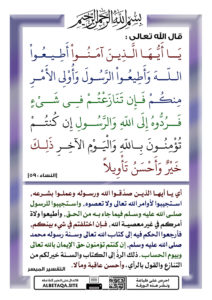 بسم الله الرحمن الرحيم
قال الله تعالى :
يَا أَيُّهَا الَّذِينَ آمَنُوا أَطِيعُوا
اللَّهَ وَأَطِيعُوا الرَّسُولَ وَأُولِي الْأَمْرِ
مِنكُمْ فَإِن تَنَازَعْتُمْ فِي شَيْءٍ
فَرُدُّوهُ إِلَى اللَّهِ وَالرَّسُولِ إِن كُنتُمْ
تُؤْمِنُونَ بِاللَّهِ وَالْيَوْمِ الْآخِرِ ذَلِكَ
خَيْرٌ وَأَحْسَنُ تَأْوِيلًا
[النساء : ٥٩]
أي يا أيها الذين صدَّقوا الله ورسوله وعملوا بشرعه،
استجيبوا لأوامر الله تعالى ولا تعصوه، واستجيبوا للرسول
صلى الله عليه وسلم فيما جاء به من الحق، وأطيعوا ولاة
أمركم في غير معصية الله، فإن اختلفتم في شيء بينكم،
فأرجعوا الحكم فيه إلى كتاب الله تعالى وسنة رسوله محمد
صلى الله عليه وسلم، إن كنتم تؤمنون حق الإيمان بالله تعالى
وبيوم الحساب. ذلك الردُّ إلى الكتاب والسنة خير لكم من
التنازع والقول بالرأي، وأحسن عاقبة ومآلا.
التفسير الميسر
ALBETAQA.SITE